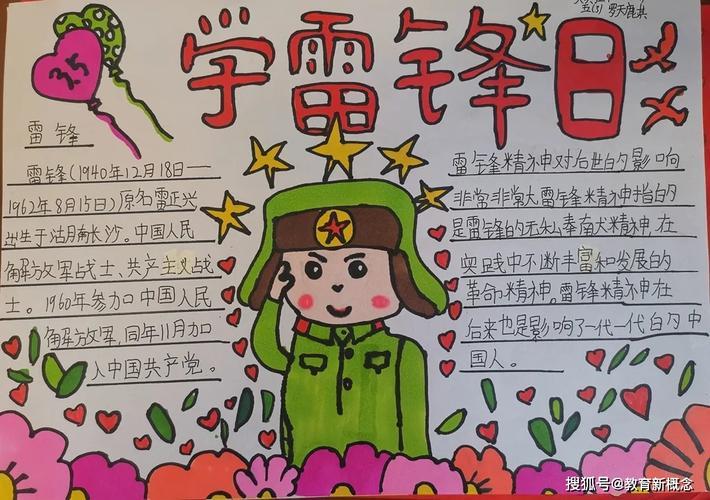 3.5
学雷锋日
五(3) 罗天鹿淇
雷锋
雷锋(1940年12月18日—
1962年8月15日)原名雷正兴
出生于湖南长沙。中国人民
解放军战士、共产主义战
士。1960年参加中国人民
解放军,同年11月加
入中国共产党。
雷锋精神对后世的影响
非常非常大雷锋精神指的
是雷锋的无私奉南犬精神在
实践中不断丰富和发展的
革命精神。雷锋精神在
后来也是影响了一代一代白的中
国人。
搜狐号@教育新概念